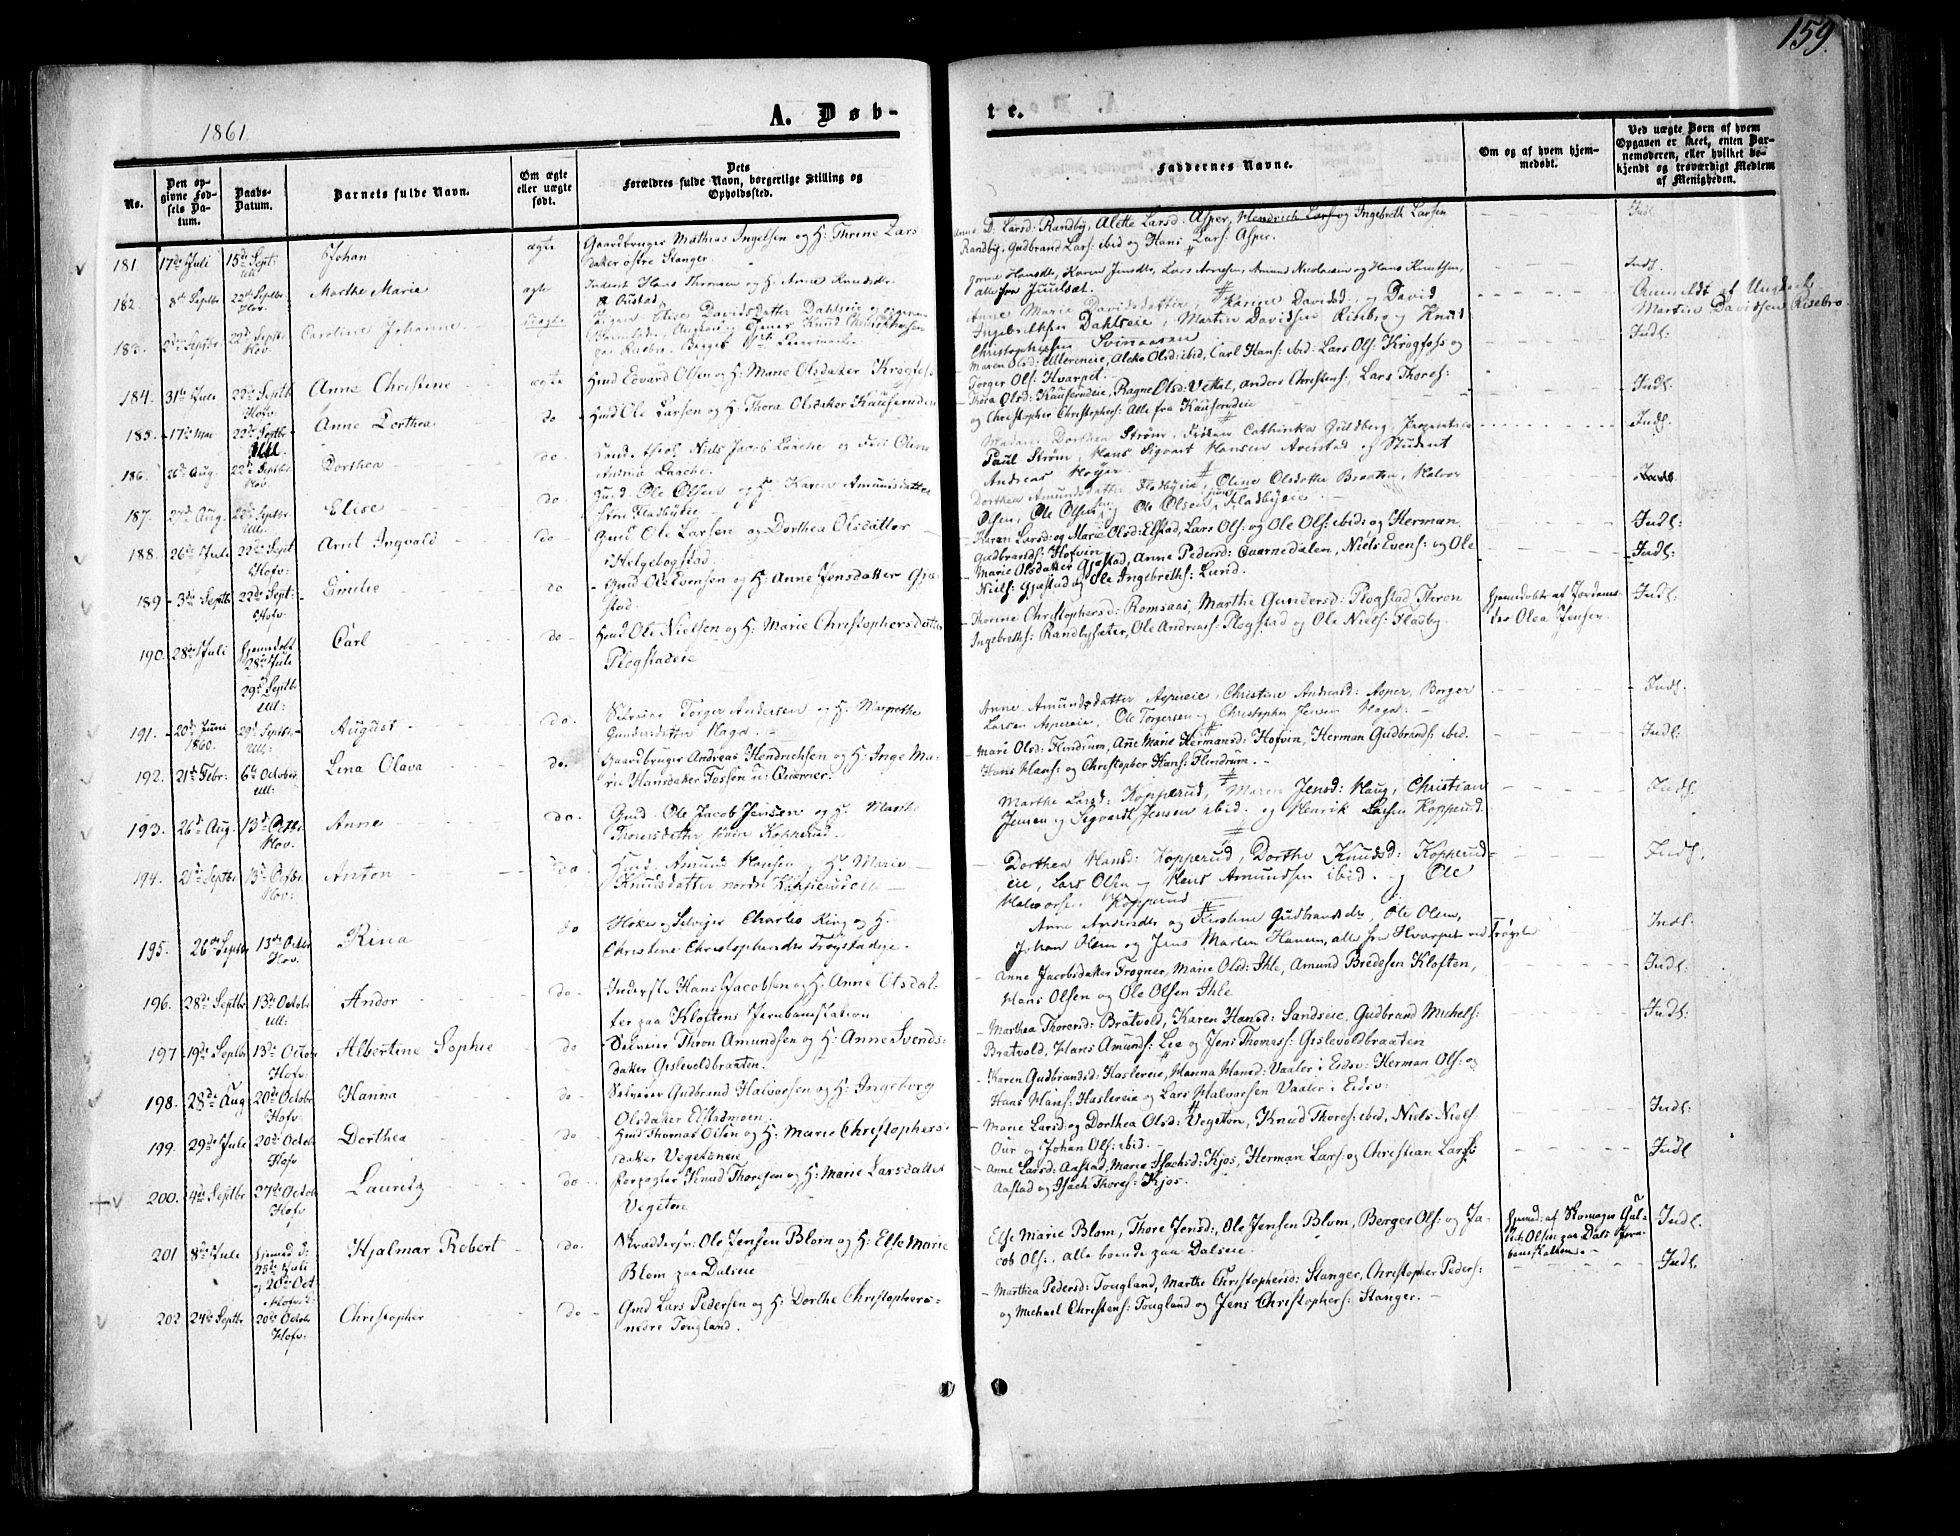 159.
1861.
A. Døb-
te.
No.
Den op-
givne Fød-
sels Da-
tum.
Daabs-
Datum.
Barnets fulde Navn.
Om ægte
eller uægte
født.
Dets
Forældres fulde Navn, borgerlige Stilling og
Opholdssted.
Faddernes Navne.
Om og af hvem hjem-
medøbt.
Ved uægte Børn af hvem
Opgaven er skeet, enten Bar-
nemoderen, eller hvilket be-
kjendt og troværdigt Medlem
af Menigheden.
181. 17de Juli 15de Sept: Ull: Johan ægte
Gaardbruger Mathias Ingelsen og H: Thrine Lars
datter østre Stanger.
Anne D. Larsd: Randby, Alette Larsd: Asper, Hendrich Lars: og Ingebreth Larsen
Randby, Gudbrand Lars: ibid og Hans Lars: Asper.
Indl
182. 8de Septbr 22de Septbr Hov. Marthe Marie ægte
Inderst Hans Thorsen og H. Anne Knudsdtr
Karen Jensdtr, Lars Arnesen, Amund Nicolaisen og Hans Knudsen,
alle fra Juulsæt.
Indl.
183. 2den Septbr 22de Septbr Hov. Caroline Johanne uægte
Pigen Elise Davidsdatter Dahlseie og
Anne Marie Davidsdatter, Karine Davidsd: og David
Ingebrethsen Dahlseie, Martin Davidsen Risebro og Knud
Christophersen Svinaasen
Anmeldt af
Martin Davidsen Risebro
Indl:
184. 31te Juli 22de Septb Hofv: Anne Christine ægte
Hmd Edvard Olsen og H: Marie Olsdatter Krogfoss
Maren Olsd: Ullereneie, Aleth Olsd: ibid, Carl Hans: ibid: Lars Ols: Krogfoss og
Torger Ols: Hvarpet.
Indl:
185. 17de Mai 22de Septbr Ull Anne Dorthea do
Hmd Ole Larsen og H. Thora Olsdatter Kauserudeie
Thora Olsd: Kauserudeie, Ragne Olsd: Vettal, Anders Christens:, Lars Thores:
og Christopher Christophers: Alle fra Kauserudeie
Indl.
186. 26de Aug. 22de Septbr Hov. Dorthea do.
Cand. theol. Niels Jacob Laache og Fru Oline
Andrea Laache.
Madam Dorthea Strøm, Frøken Cathinka Guldberg, Proprietær
Paul Strøm, Hans Sigvart Hansen Averstad og Student
Andreas Høyer.
Indl.
187. 27de Aug. 22de Septbr. Ull: Elise do
Hmd. Ole Olsen og H. Karen Amundsdatter
Store Fladbyeie
Dorthea Amundsdatter Fladbyeie, Oline Olsdatter Braathe, Halvor
Olsen, Ole Olsen og Ole Olsen Fladbyeie.
Indl:
188. 26de Juli 22de Sept Hofv: Arnt Ingvald do
Gmd Ole Larsen og Dorthea Olsdatter
Helgebogstad.
Karen Larsd: og Marie Olsd: Elstad, Lars Ols: og Ole Ols: ibid: og Herman
Gudbrands: Hofvin
Indl:
189 3de Septb 22de Sept: Hofv: Emilie do
Gmd Ole Evensen og H: Anne Jensdatter Gja-
stad.
Marie Olsdatter Gjøstad, Anne Pedersd: Quarnedalen, Niels Evens: og Ole
Niels: Gjøstad og Ole Ingebreths: Lund.
Indl:
190. 28de Juli Hjemdøbt 28de Juli 29de Septbr Ull: Carl do
Hmd Ole Nielsen og H: Marie Christophersdatter
Plogstadeie
Thorine Christophersd: Romsaas, Marthe Gundersd: Plogstad, Thron
Ingebreths: Randbysæter, Ole Andreas: Plogstad og Ole Niels: Fladby.
Hjemdøbt af Jordemo-
der Olea Jensen.
Indl:
191. 20de Juni 1860. 29de Septbr. Ull: August do.
Selveier Torger Andersen og H. Marthe
Gundersdatter Haga.
Anne Amundsdatter Aspereie, Christine Andreasd: Asper, Borger
Larsen Aspereie, Ole Torgersen og Christopher Jensen Haga.
Indl.
192. 21de Febr: 6te October Ull: Lina Olava do.
Gaardbruger Andreas Hendrichsen og H. Inge Ma-
rie Hansdatter Fossen u: Quærner.
Marie Olsd: Flindrum, Ane Marie Hermansd: Hofvin, Herman Gudbrands: ibid.
Hans Hans: og Christopher Hans: Flindrum.
Indl:
193. 26de Aug. 13de Octbr Hov. Anne do.
Gmd. Ole Jacob Jensen og H. Marthe
Thorersdatter Kopperud.
Marthe Larsd: Kopperud, Maren Jensd: Haug, Christian
Jensen og Sigvardt Jensen ibid. og Henrik Larsen Kopperud.
Indl.
194. 21de Septbr 13de Octbr Hov: Anton do.
Hmd. Amund Hansen og H. Marie
Knudsdatter nordre Kopperudeie
Dorthea Hansd: Kopperud, Dorthe Knudsd: Kopperud-
eie, Lars Olsen og Hans Amundsen ibid. og Ole
Halvors: Kopperud
Indl.
195. 26de Septbr 13de Octbr Hov. Rina do
Høker og Selveier Charles King og H.
Christine Christophersdtr Trøgstadeie.
Anne Andersdtr og Kirstine Gudbrandsdtr, Ole Olsen,
Johan Olsen og Jens Martin Hansen, alle fra Hvarpet ved Trøgstad
Indl.
196. 28de Septbr 13de Octobr Ull: Andor do
Inderste Hans Jacobsen og H: Anne Olsdat-
ter paa Kløftens Jernbanestation
Anne Jacobsdatter Frogner, Marie Olsd: Ihle, Amund Bredesen Kløften,
Hans Olsen og Ole Olsen Ihle
Indl:
197 19de Septbr 13de Octobr Hofv: Albertine Sophie do
Selveier Thron Amundsen og H: Anne Svends-
datter Gislevoldbraaten.
Marthea Thorersd: Bratvold, Karen Hansd: Sandseie, Gudbrand Michels:
Bratvold, Hans Amunds: Lie og Jens Thomas: Gislevoldbraaten
Indl:
198. 28de Aug 20de Octobr Hofv: Hanna do.
Selveier Gudbrand Halvorsen og H: Ingeborg
Olsdatter Elstadmoen.
Karen Gudbrandsd: Haslereie, Hanna Hansd: Vaaler i Eidsv: Herman Ols: og
Hans Hans: Haslereie og Lars Halvorsen Vaaler i Eidsv:
Indl:
199. 29de Juli 20de Octob Hofv Dorthea do
Hmd Thomas Olsen og H: Marie Christophers-
datter Vegstøneie
Marie Larsd: og Dorthea Olsd: Vegston, Knud Thores: ibid, Niels Niels
Our og Johan Ols: ibid.
Indl
200. 4de Septbr 27de Octob Hofv Lauritz do
Forpagter Knud Thoresen og H: Marie Larsdatter
Vegston
Anne Larsd: Aastad, Marie Isachsd: Kjos, Herman Lars: og Christian Lars:
Aastad og Isach Thores: Kjos.
201 8de Juli Hjemd d: 25de Juli og 20de Oct Hofv: Hjalmar Robert do.
Skrædersv: Ole Jensen Blom og H: Else Marie
Blom paa Dalseie
Else Marie Blom, Thore Jensd:, Ole Jensen Blom, Berger Ols: og Ja-
cob Ols:, alle boende paa Dalseie.
Hjemd: af Skomager Gul-
lick Olsen paa Dals Jern-
banestation.
Indl.
202 24de Septbr 20de Octob Hofv: Christopher do
Gmd Lars Pedersen og H: Dorthe Christophers:
nedre Tougland.
Marthea Pedersd: Tougland, Marthe Christophersd: Stanger, Christopher Peders:
og Michael Christens: Tougland og Jens Christophers: Stanger.
Indl.